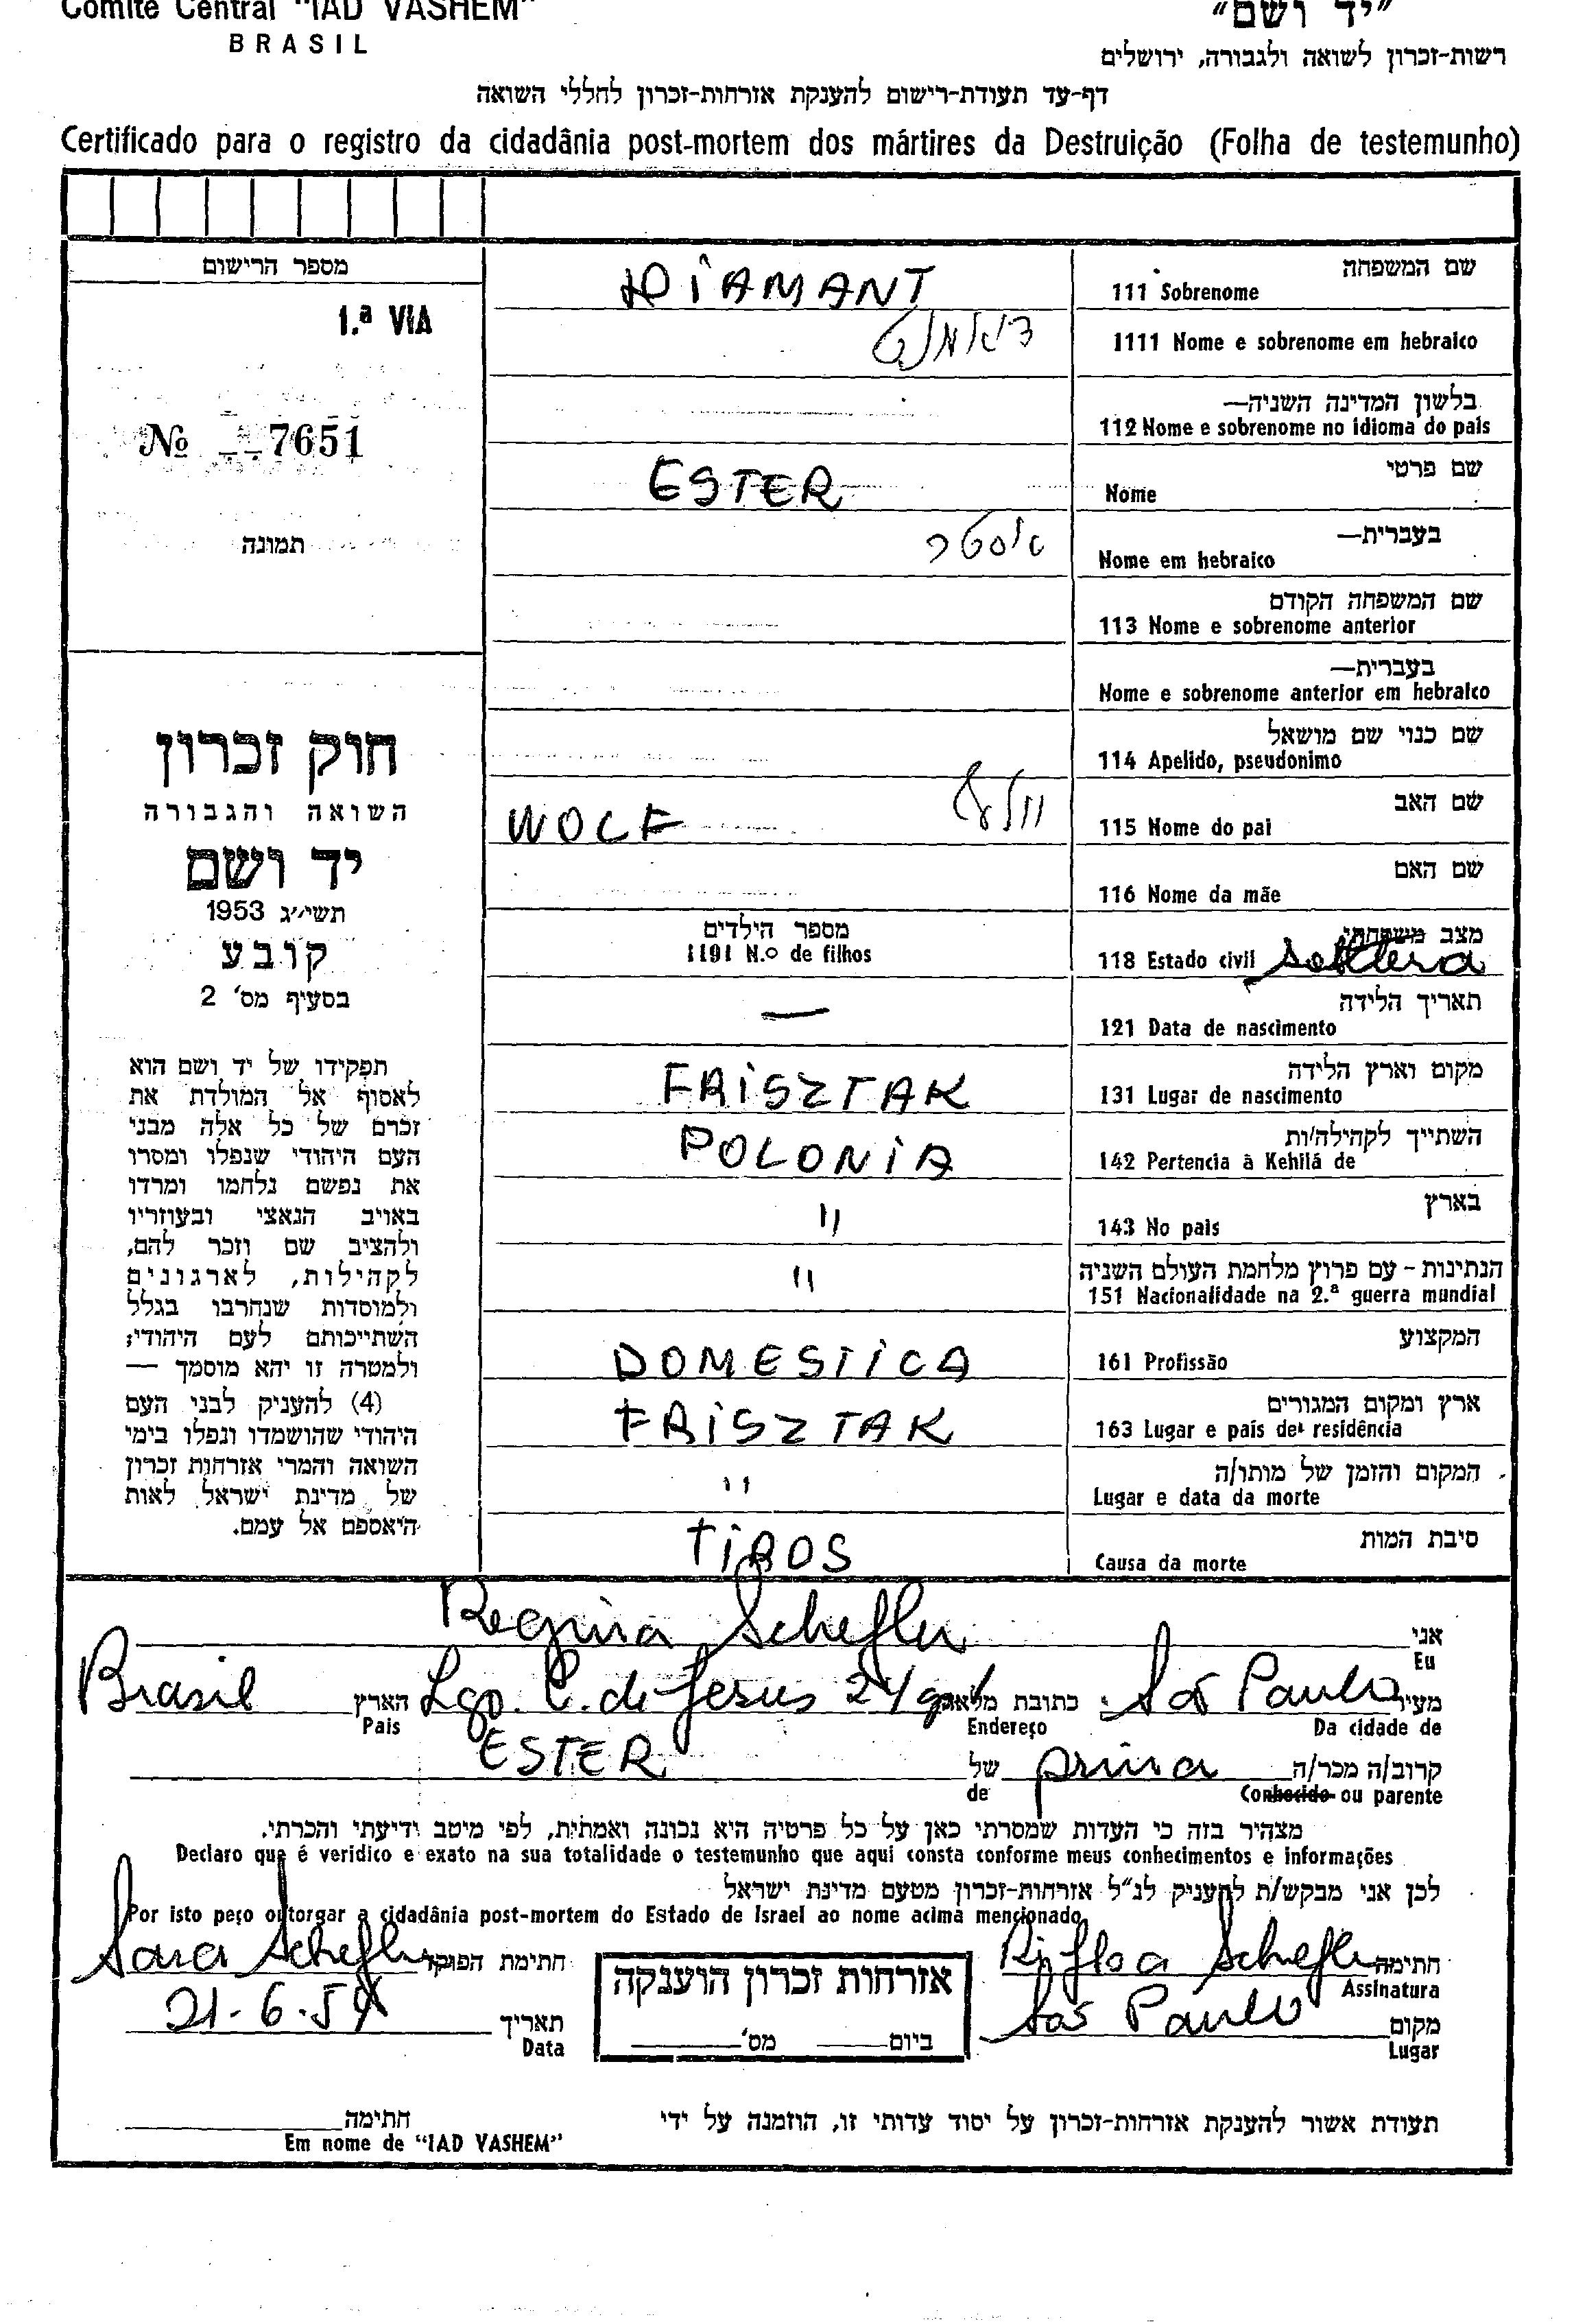 Comité Central "IAD VASHEM"
BRASIL
"יד ושם"
רשות-זכרון לשואה ולגבורה, ירושלים
דף-עד תעודת-רישום להענקת אזרחות-זכרון לחללי השואה
Certificado para o registro da cidadânia post-mortem dos mártires da Destruição (Folha de testemunho)
מספר הרישום
1.ª VIA
№ 7651
תמונה
חוק זכרון
השואה והגבורה
יד ושם
תשי״ג 1953
קובע
בסעיף מס' 2
תפקידו של יד ושם הוא
לאסוף אל המולדת את
זכרם של כל אלה מבני
העם היהודי שנפלו ומסרו
את נפשם נלחמו ומרדו
באויב הנאצי ובעוזריו
ולהציב שם וזכר להם,
לקהילות, לארגונים
ולמוסדות שנחרבו בגלל
השתייכותם לעם היהודי;
ולמטרה זו יהא מוסמך —
(4) להעניק לבני העם
היהודי שהושמדו ונפלו בימי
השואה והמרי אזרחות זכרון
של מדינת ישראל לאות
היאספם אל עמם.
שם המשפחה
111 Sobrenome DIAMANT
1111 Nome e sobrenome em hebraico דיאמאנט
בלשון המדינה השניה—
112 Nome e sobrenome no idioma do país
שם פרטי
Nome ESTER
בעברית—
Nome em hebraico אסטר
שם המשפחה הקודם
113 Nome e sobrenome anterior
בעברית—
Nome e sobrenome anterior em hebraico
שם כנוי שם מושאל
114 Apelido, pseudonimo
שם האב
115 Nome do pai WOLF וולף
שם האם
116 Nome da mãe
מצב משפחתי
118 Estado civil solteira
מספר הילדים
1191 N.º de filhos
תאריך הלידה
121 Data de nascimento —
מקום וארץ הלידה
131 Lugar de nascimento FRISZTAK
השתייך לקהילה/ות
142 Pertencia à Kehilá de POLONIA
בארץ
143 No pais "
הנתינות - עם פרוץ מלחמת העולם השניה
151 Nacionalidade na 2.ª guerra mundial "
המקצוע
161 Profissão DOMESTICA
ארץ ומקום המגורים
163 Lugar e país de residência FRISZTAK
המקום והזמן של מותו/ה
Lugar e data da morte "
סיבת המות
Causa da morte TIROS
אני Regina Schefler
Eu
מעיר São Paulo כתובת מלאה Lgo. C. de Jesus 24 הארץ Brasil
Da cidade de Endereço Pais
קרוב/ה מכר/ה prima של ESTER
Conhecido ou parente de
מצהיר בזה כי העדות שמסרתי כאן על כל פרטיה היא נכונה ואמתית, לפי מיטב ידיעתי והכרתי.
Declaro que é veridico e exato na sua totalidade o testemunho que aqui consta conforme meus conhecimentos e informações
לכן אני מבקש/ת להעניק לנ"ל אזרחות-זכרון מטעם מדינת ישראל
Por isto peço outorgar a cidadânia post-mortem do Estado de Israel ao nome acima mencionado
חתימה Schefler
Assinatura
חתימת הפוקד Sara Schefler
מקום São Paulo
Lugar
אזרחות זכרון הוענקה
ביום מס'
תאריך
Data
תעודת אשור להענקת אזרחות-זכרון על יסוד עדותי זו, הוזמנה על ידי
חתימה
Em nome de "IAD VASHEM"